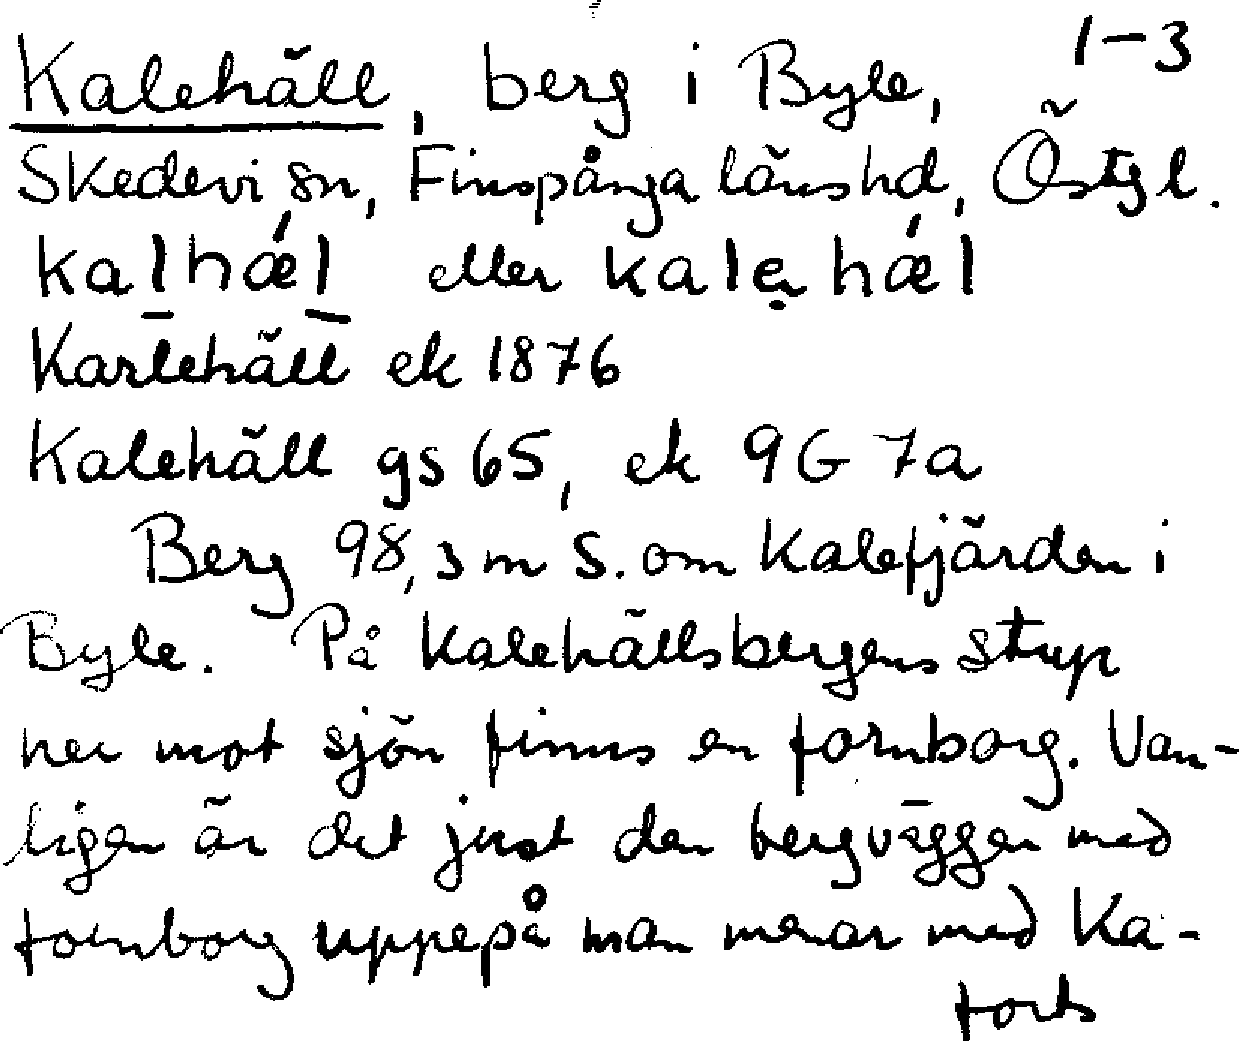 1-3
Kalehäll, berg i Byle,
Skedevi sn, Finspånga länshd, Östgl.
kalhǽl eller kalehǽl
Karlehäll ek 1876
Kalehäll gs 65, ek 9G 7a
Berg 98,3 m S. om Kalefjärden i
Byle. På Kalehällsbergens stup
ner mot sjön finns en fornborg. Van-
ligen är det just den bergväggen med
fornborg uppepå man menar med Ka-
forts